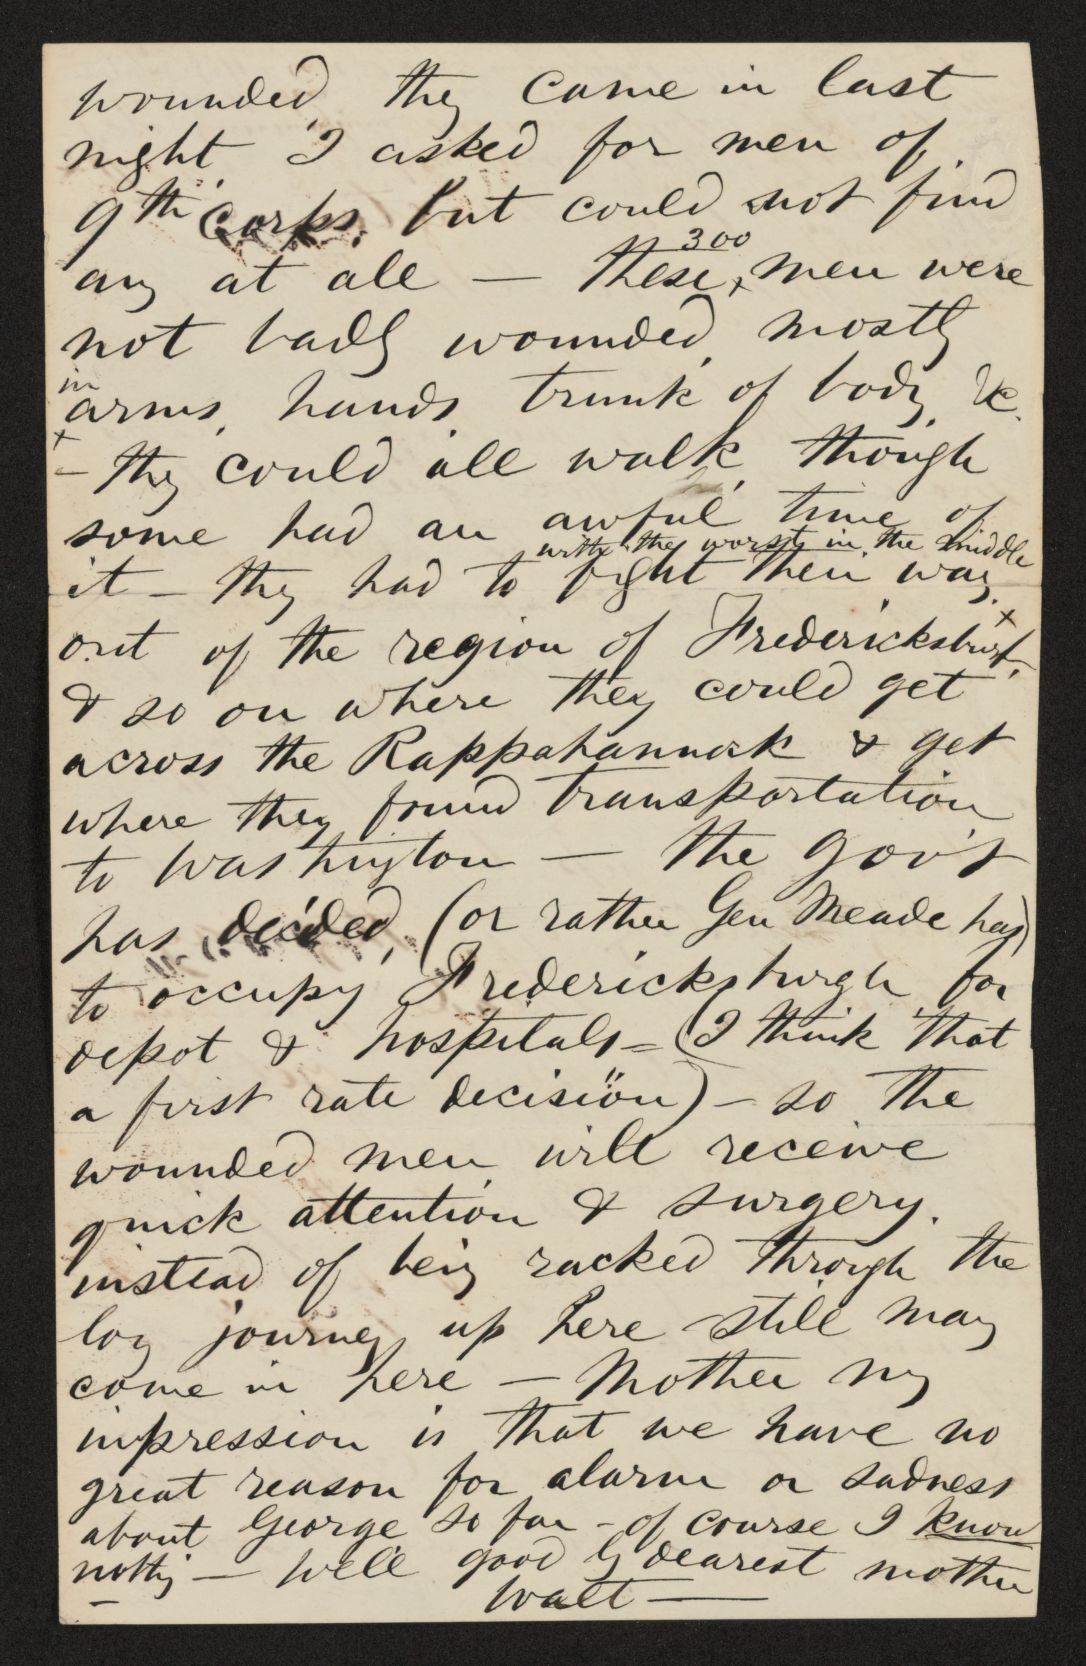 wounded, they came in last
night. I asked for men of
9th corps, but could not find
any at all — these 300 men were
not badly wounded, mostly
in arms, hands, trunk of body, &c.
— they could all walk, though
some had an awful time of
with the worst in the middle
it — they had to fight their way
out of the region of Fredericksburgh,
& so on where they could get
across the Rappahannock & get
where they found transportation
to Washington — the gov't
has decided, (or rather Gen Meade has)
to occupy Fredericksburgh for
depot & hospitals — (I think that
a first rate decision) — so the
wounded men will receive
quick attention & surgery,
instead of being racked through the
long journey up here — still many
come in here — Mother my
impression is that we have no
great reason for alarm or sadness
about George so far — of course I know
nothing — well good by dearest mother
Walt —